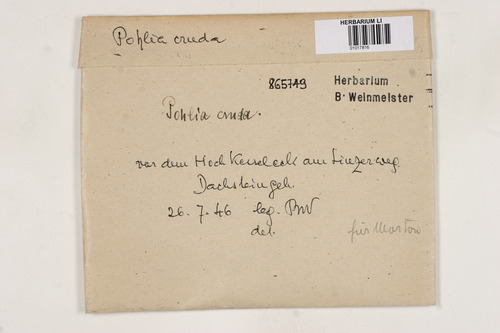 Pohlia cruda
HERBARIUM LI
01017816
865749
Herbarium
B. Weinmeister
Pohlia cruda.
vor dem Hoch Kesseleck am Linzerweg.
Dachsteingeb.
26. 7. 46 leg. BW
det.
für